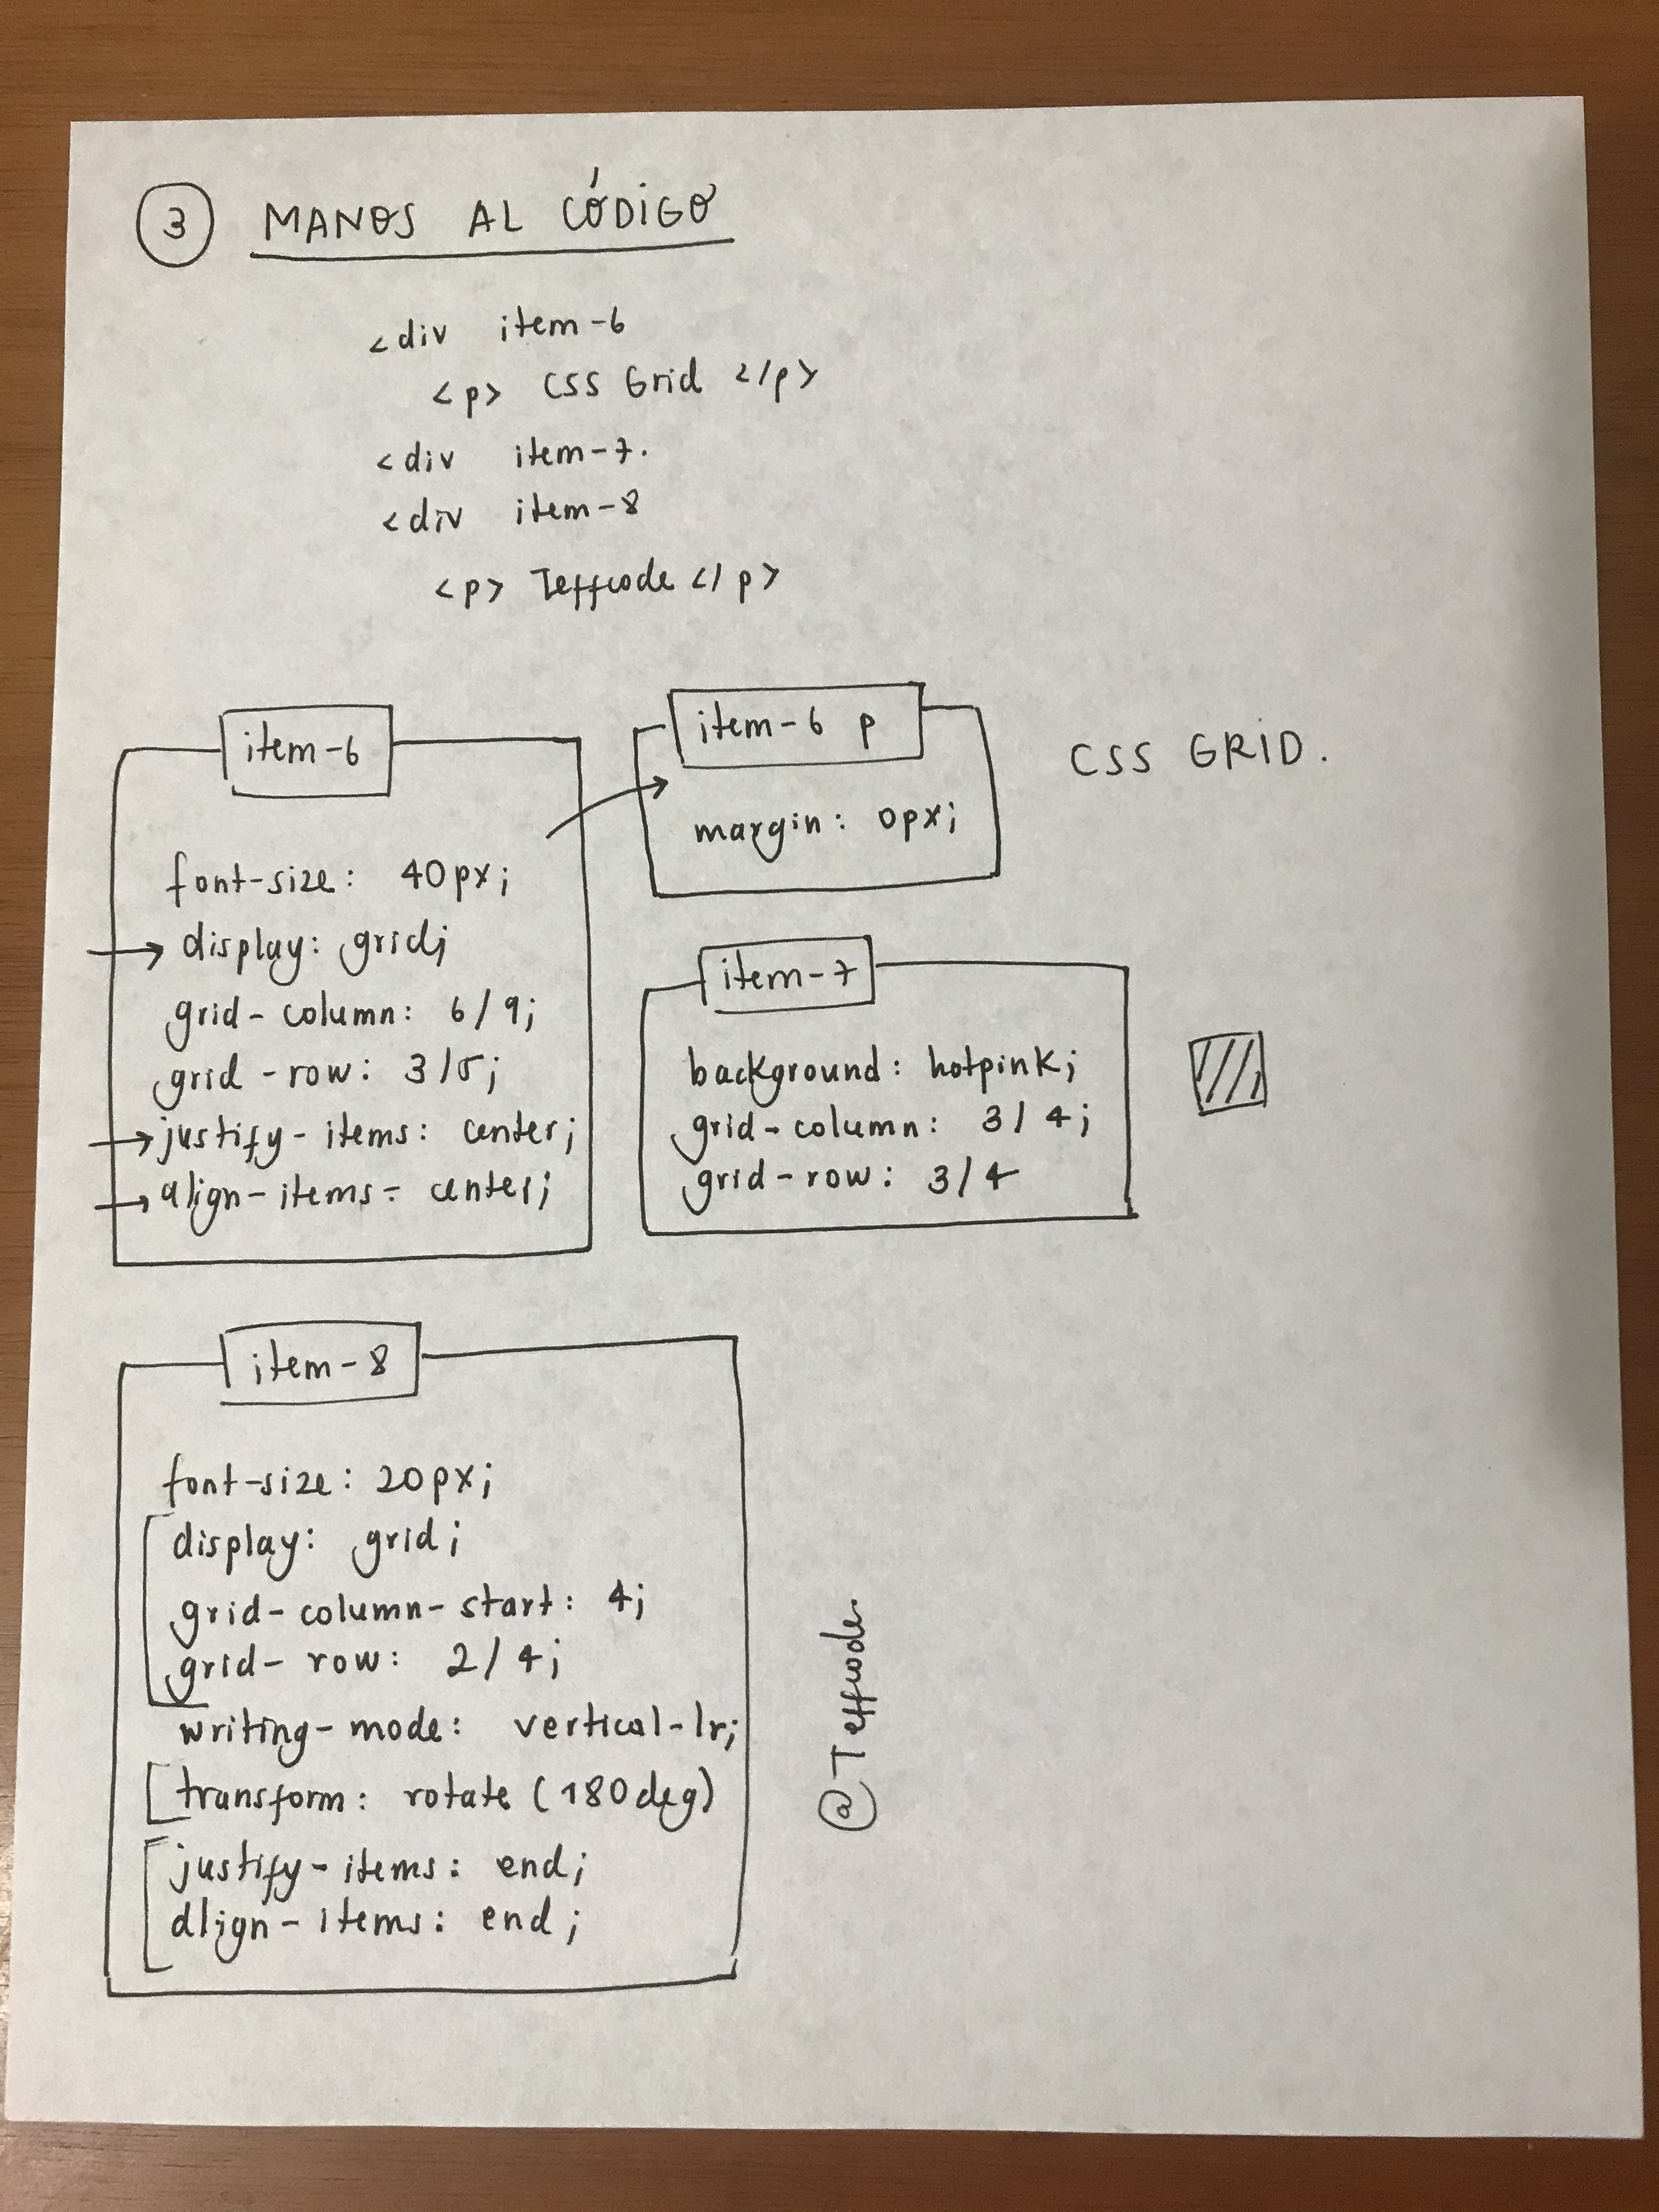 3 MANOS AL CÓDIGO
<div item-6
<p> CSS Grid </p>
<div item-7.
<div item-8
<p> Teffcode </p>
item-6
font-size: 40px;
display: grid;
grid-column: 6/9;
grid-row: 3/5;
justify-items: center;
align-items: center;
item-6 p
margin: 0px;
CSS GRID.
item-7
background: hotpink;
grid-column: 3/4;
grid-row: 3/4
item-8
font-size: 20px;
display: grid;
grid-column-start: 4;
grid-row: 2/4;
writing-mode: vertical-lr;
transform: rotate (180deg)
justify-items: end;
align-items: end;
@Teffcode